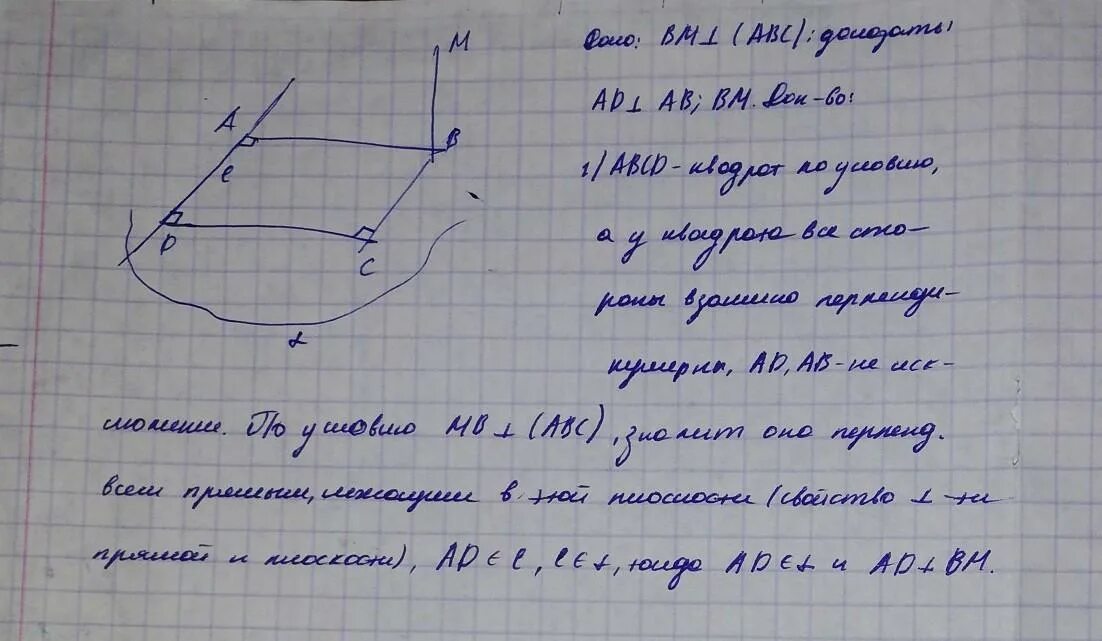 M
Дано: BM⊥(ABC); доказать:
A
AD⊥ AB; BM. Док-во:
B
e
1) ABCD - квадрат по условию,
D
C
а у квадрата все сто-
роны взаимно перпенди-
α
кулярны, AD, AB - не иск-
лючение. По условию MB⊥(ABC), значит она перпенд.
всем прямым, лежащим в этой плоскости (свойство ⊥-ти
прямой и плоскости), AD∈e, e∈α, тогда AD∈α и AD⊥BM.